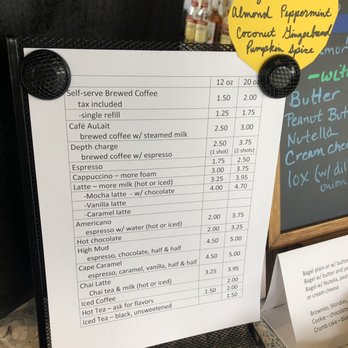 Almond Peppermint
Coconut Gingerbread
Pumpkin Spice
12 oz 20 oz
Self-serve Brewed Coffee
tax included 1.50 2.00
-single refill 1.25 1.75
Café AuLait
brewed coffee w/ steamed milk 2.50 3.00
Depth charge 2.50 3.75
brewed coffee w/ espresso (1 shot) (2 shots)
Espresso 1.75 2.50
Cappuccino – more foam 3.00 3.75
Latte – more milk (hot or iced) 3.25 3.95
-Mocha latte - w/ chocolate 4.00 4.70
-Vanilla latte
-Caramel latte
Americano
espresso w/ water (hot or iced) 2.00 3.75
Hot chocolate 2.00 2.50
High Mud
espresso, chocolate, half & half 4.50 5.00
Cape Caramel
espresso, caramel, vanilla, half & half 4.50 5.00
Chai Latte 3.25 3.95
Chai tea & milk (hot or iced)
Iced Coffee 2.00
Hot Tea – ask for flavors 1.50
Iced Tea – black, unsweetened 1.50
with
Butter
Peanut Butt
Nutella
Cream chee
lox (w/ dil
onion
Bagel plain or w/ butter
Bagel w/ butter and
Bagel w/ Nutella, pean
or cream cheese
Brownies, blondies,
Cookie – chocolate
Crumb cake – b